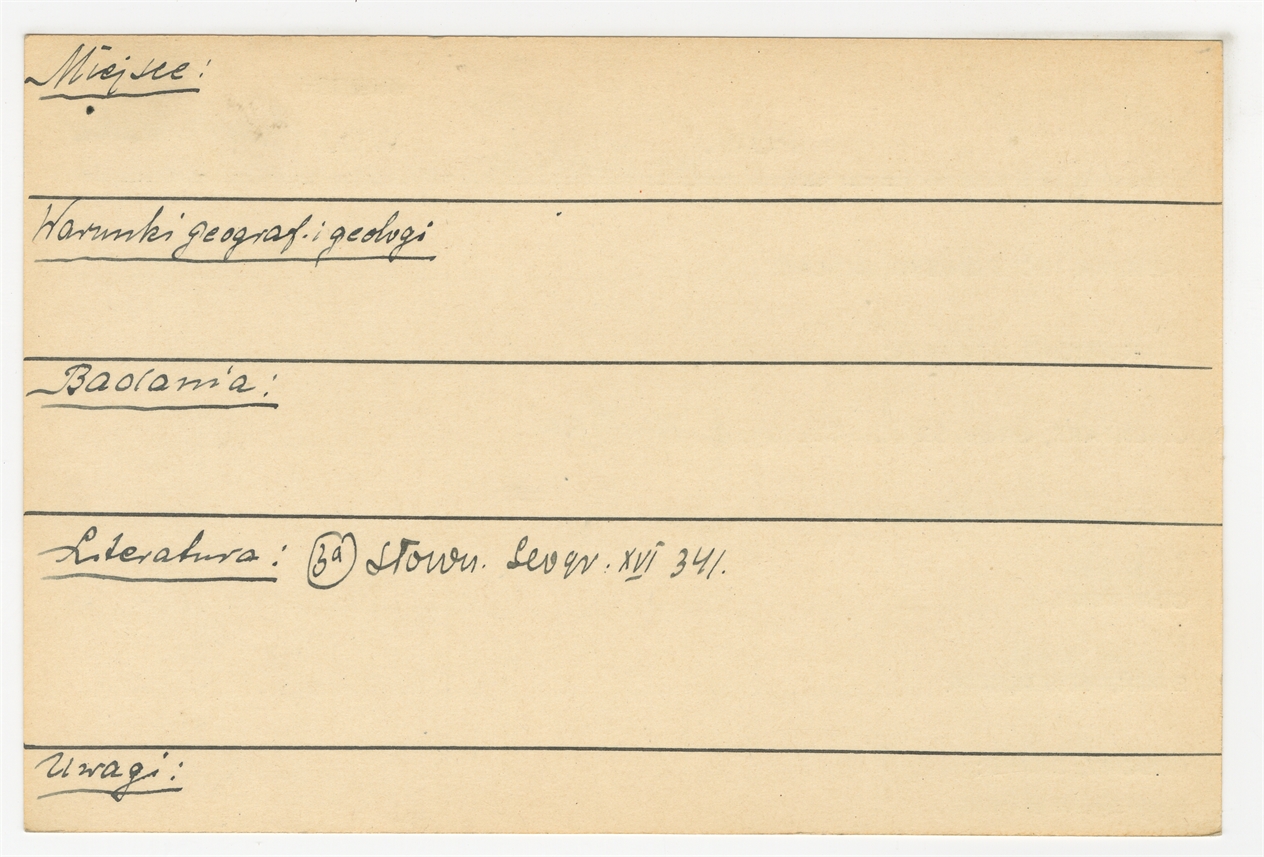 Miejsce:
Warunki geograf. i geologi
Badania:
Literatura: 3a Słown. Geogr. XVI 341.
Uwagi: